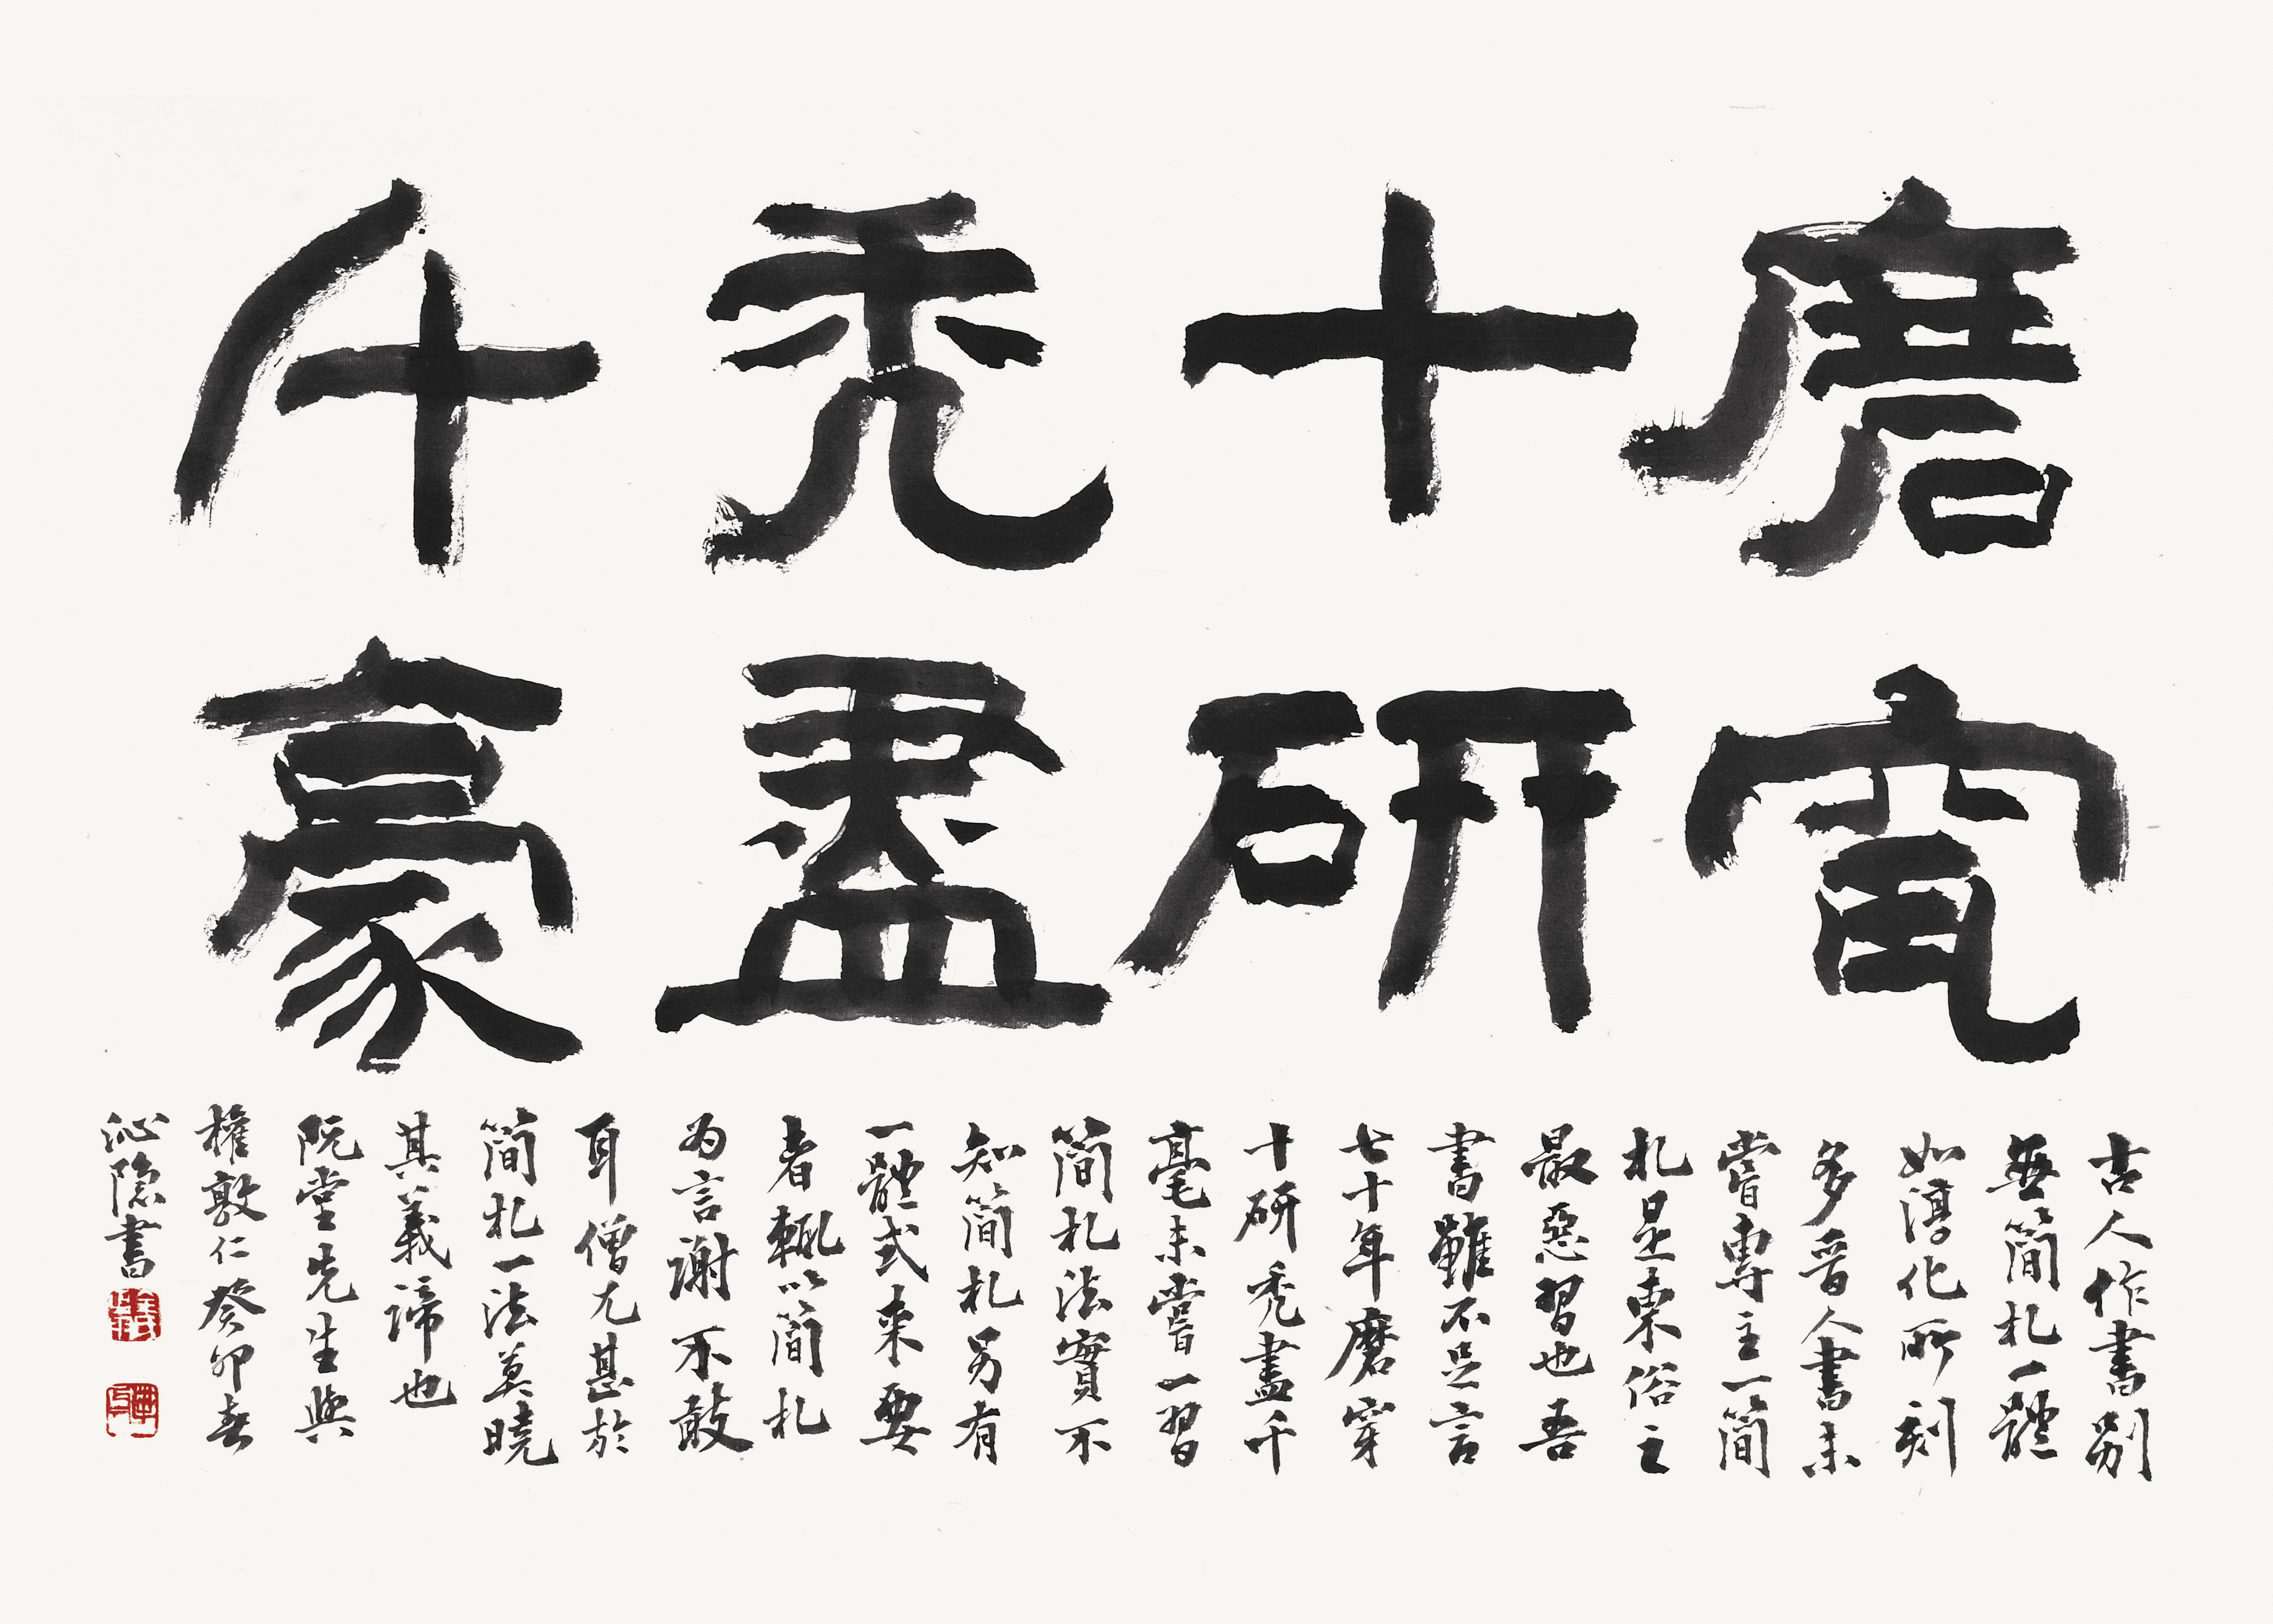 磨穿
十研
禿盡
千豪
古人作書別
無簡札一體
如淳化所刻
多晉人書未
嘗專主一簡
札是東俗之
最惡習也吾
書雖不足言
七十年磨穿
十研禿盡千
毫未嘗一習
簡札法實不
知簡札另有
一體式来要
者輒以簡札
为言謝不敢
耳僧尤甚於
簡札一法莫曉
其義諦也
阮堂先生與
權敦仁癸卯春
沁隐書